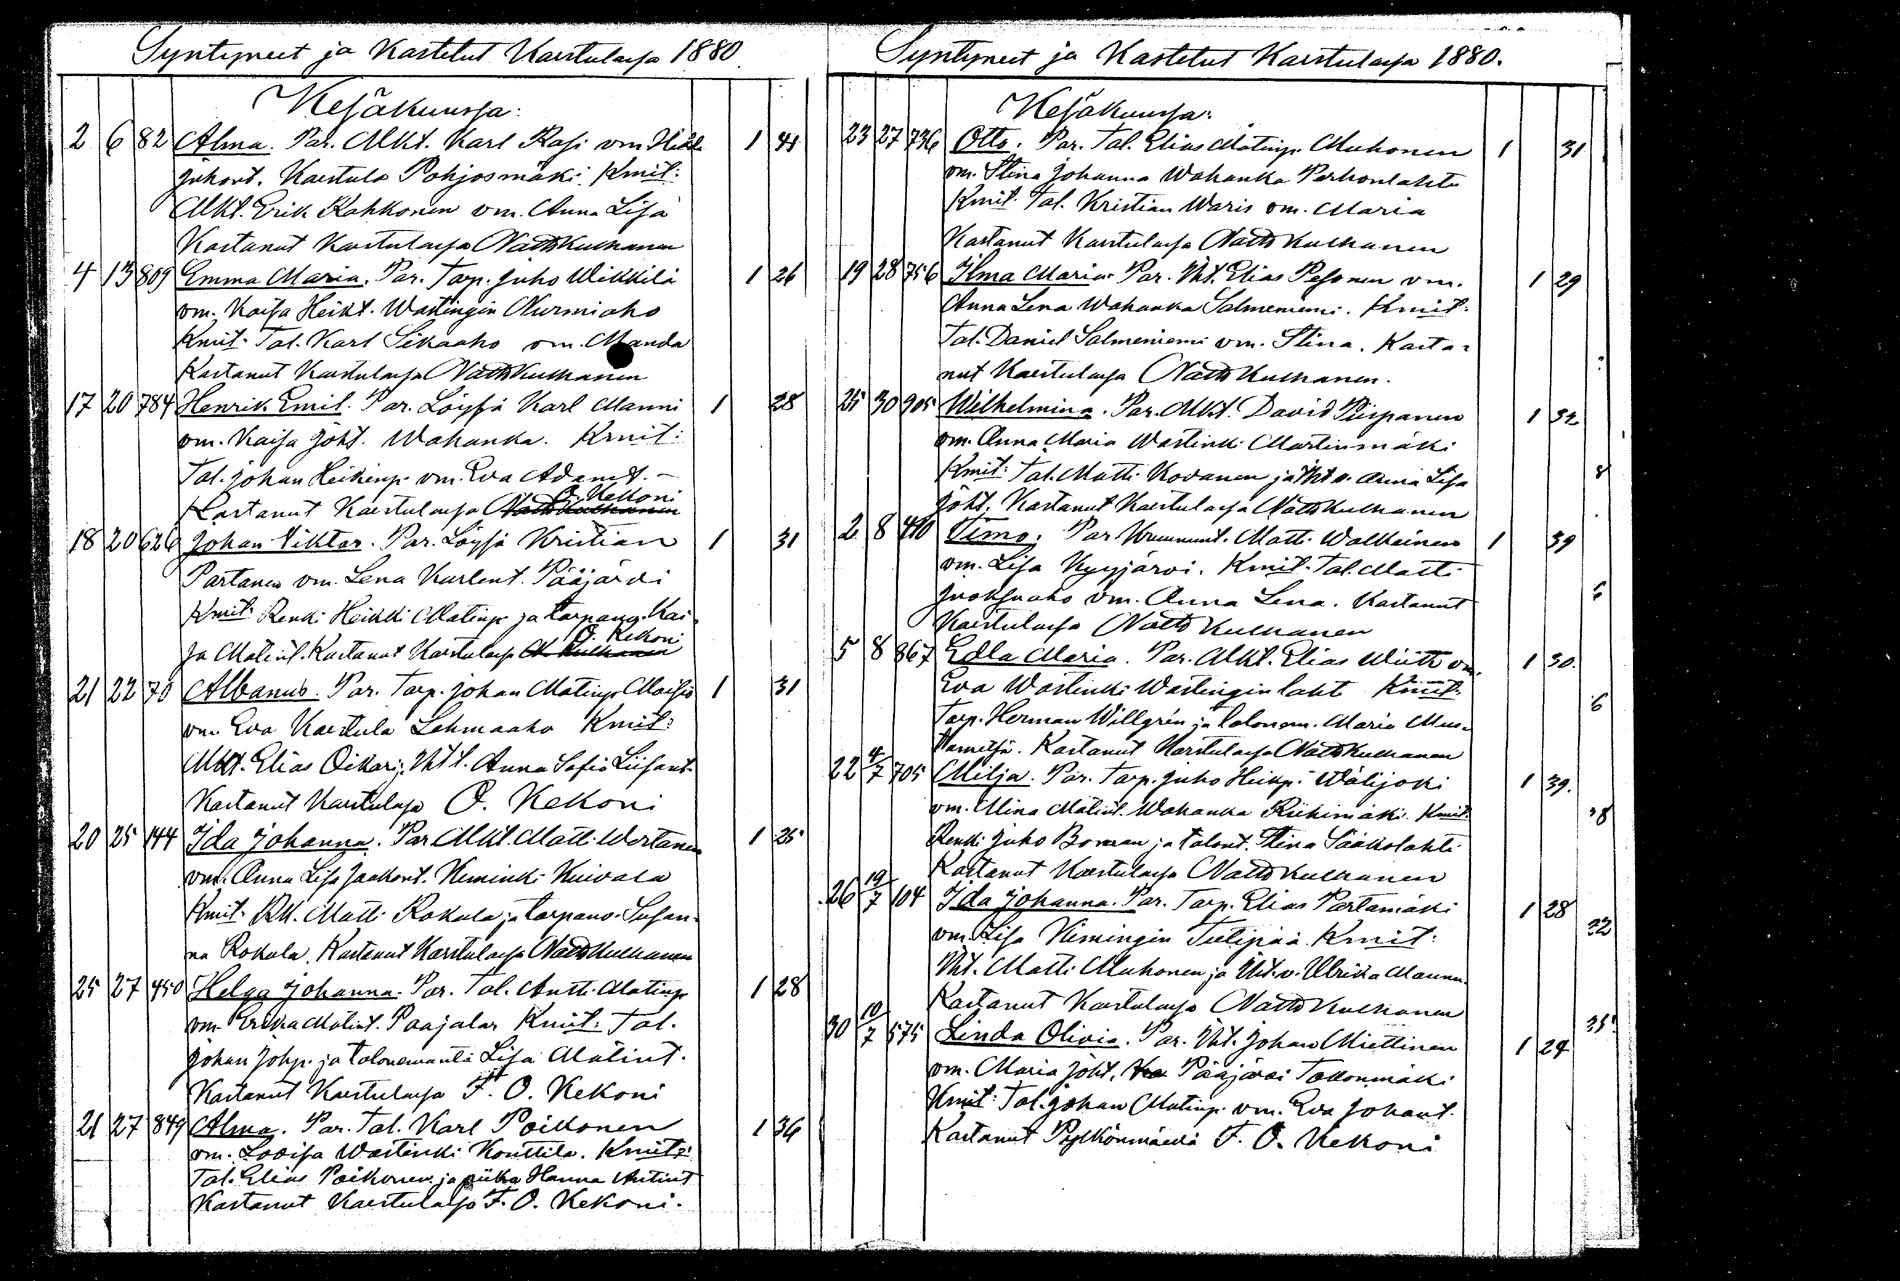 Syntyneet ja Kastetut Karstulassa 1880
Kesäkuussa:
2 6 82 Alma. Par. Mkt. Karl Rasi vm. Hedv. 1 41
Juhont. Karstula Pohjosmäki. Kmit:
Mkt. Erik Kahkonen vm. Anna Lisa
Kastanut Karstulassa Matts Kulhanen
4 13 809 Emma Maria. Par. Torp. Juho Wikkilä 1 26
vm. Kaisa Heikt. Wastingin Nurmiaho
Kmit: Tal. Karl Sikaaho vm. Manda
Kastanut Karstulassa Matts Kulhanen
17 20 784 Henrik Emil. Par. Löysä Karl Manni 1 28
vm. Kaisa Joht. Wahanka. Kmit:
Tal. Johan Heikinp. vm. Eva Adamt.
O. Kekoni
Kastanut Karstulassa Matts Kulhanen
18 20 626 Johan Viktor. Par. Löysä Kristian 1 31
Partanen vm. Lena Karlent. Pääjärvi
Kmit: Renki Heikki Matinp. ja torpanp. Kai-
O. Kekoni
sa Matint. Kastanut Karstulassa M. Kulhanen
21 22 70 Albanus. Par. Torp. Johan Matinp. Moisio 1 31
vm. Eva Karstula Lehmaaho Kmit:
Mkt. Elias Oikari, Iht t. Anna Sofia Liisant.
Kastanut Karstulassa O. Kekoni
20 25 144 Ida Johanna. Par. Mkt. Matti Wertanen 1 25
vm. Anna Lisa Jaakont. Kiminki Kuivala
Kmit: Matti Rokala ja torpanv. Susan-
na Rokala. Kastanut Karstulassa Matts Kulhanen
25 27 450 Helga Johanna. Par. Tal. Antti Matinp. 1 28
vm. Erika Matint. Paajalar Kmit: Tal.
Johan Johp. ja talonemäntä Lisa Matint.
Kastanut Karstulassa F. O. Kekoni
21 27 849 Alma. Par. Tal. Karl Poikonen 1 36
vm. Lovisa Wastinki Konttila. Kmit:
Tal. Elias Poikonen ja piika Hanna Antint
Kastanut Karstulassa F. O. Kekoni.
Syntyneet ja Kastetut Karstulassa 1880.
Kesäkuussa:
23 27 736 Otto. Par. Tal. Elias Matinp. Muhonen 1 31
vm. Stina Johanna Wahanka Perhonlahti
Kmit: Tal. Kristian Waris vm. Maria
Kastanut Karstulassa Matts Kulhanen
19 28 756 Ilma Maria. Par. Iht. Elias Pesonen vm. 1 29
Anna Lena Wahanka Salmeniemi. Kmit:
Tal. Daniel Salmeniemi vm. Stina. Kasta-
nut Karstulassa Matts Kulhanen.
25 30 905 Wilhelmina. Par. Mkt. David Piispanen 1 32
vm. Anna Maria Wastinki Martinmäki
Kmit: Tal. Matti Kovanen ja Iht v. Anna Lisa
Joht. Kastanut Karstulassa Matts Kulhanen
2 8 410 Timo. Par. Matti Walkeinen 1 39
vm. Lisa Kyyjärvi. Kmit: Tal. Matti
Juoksuaho vm. Anna Lena. Kastanut
Karstulassa Matts Kulhanen
5 8 867 Edla Maria. Par. Mkt. Elias Wiitt vm. 1 30.
Eva Wastinki Wastinginlaht Kmit:
Torp. Herman Willgrén ja talonem. Maria Mus-
tametsä. Kastanut Karstulassa Matts Kulhanen
22 4/7 705 Milja. Par. Torp. Juho Heikp. Wälijoki 1 39.
vm. Mina Matint. Wahanka Riihimäki. Kmit:
Renki Juho Boman ja talont. Stina Sääkslahti
Kastanut Karstulassa Matts Kulhanen
26 19/7 104 Ida Johanna. Par. Torp. Elias Partamäki 1 28
vm. Lisa Kimingin Tulipää Kmit:
Iht. Matti Muhonen ja Iht. v. Ulrika Maunu.
Kastanut Karstulassa Matts Kulhanen
30 10/7 575 Linda Olivia. Par. Iht. Johan Miettinen 1 24
vm. Maria Joht. Pääjärvi Tollonmäki
Kmit: Tal. Johan Matinp. vm. Eva Johant.
Kastanut Pylkönmäellä F. O. Kekoni